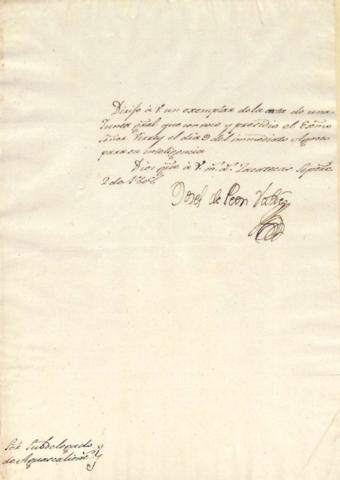 Dirijo á V. un exemplar de la acta de una
Junta gral. que convocó y presidió el Exmo
Señor Virrey el dia 9 del inmediato Agosto
para su inteligencia
Dios gũe á V. m. a.s Zacatecas Septre
2 de
Josef de Peon Valdes
Sor. Subdelegado
de Aguascalientes